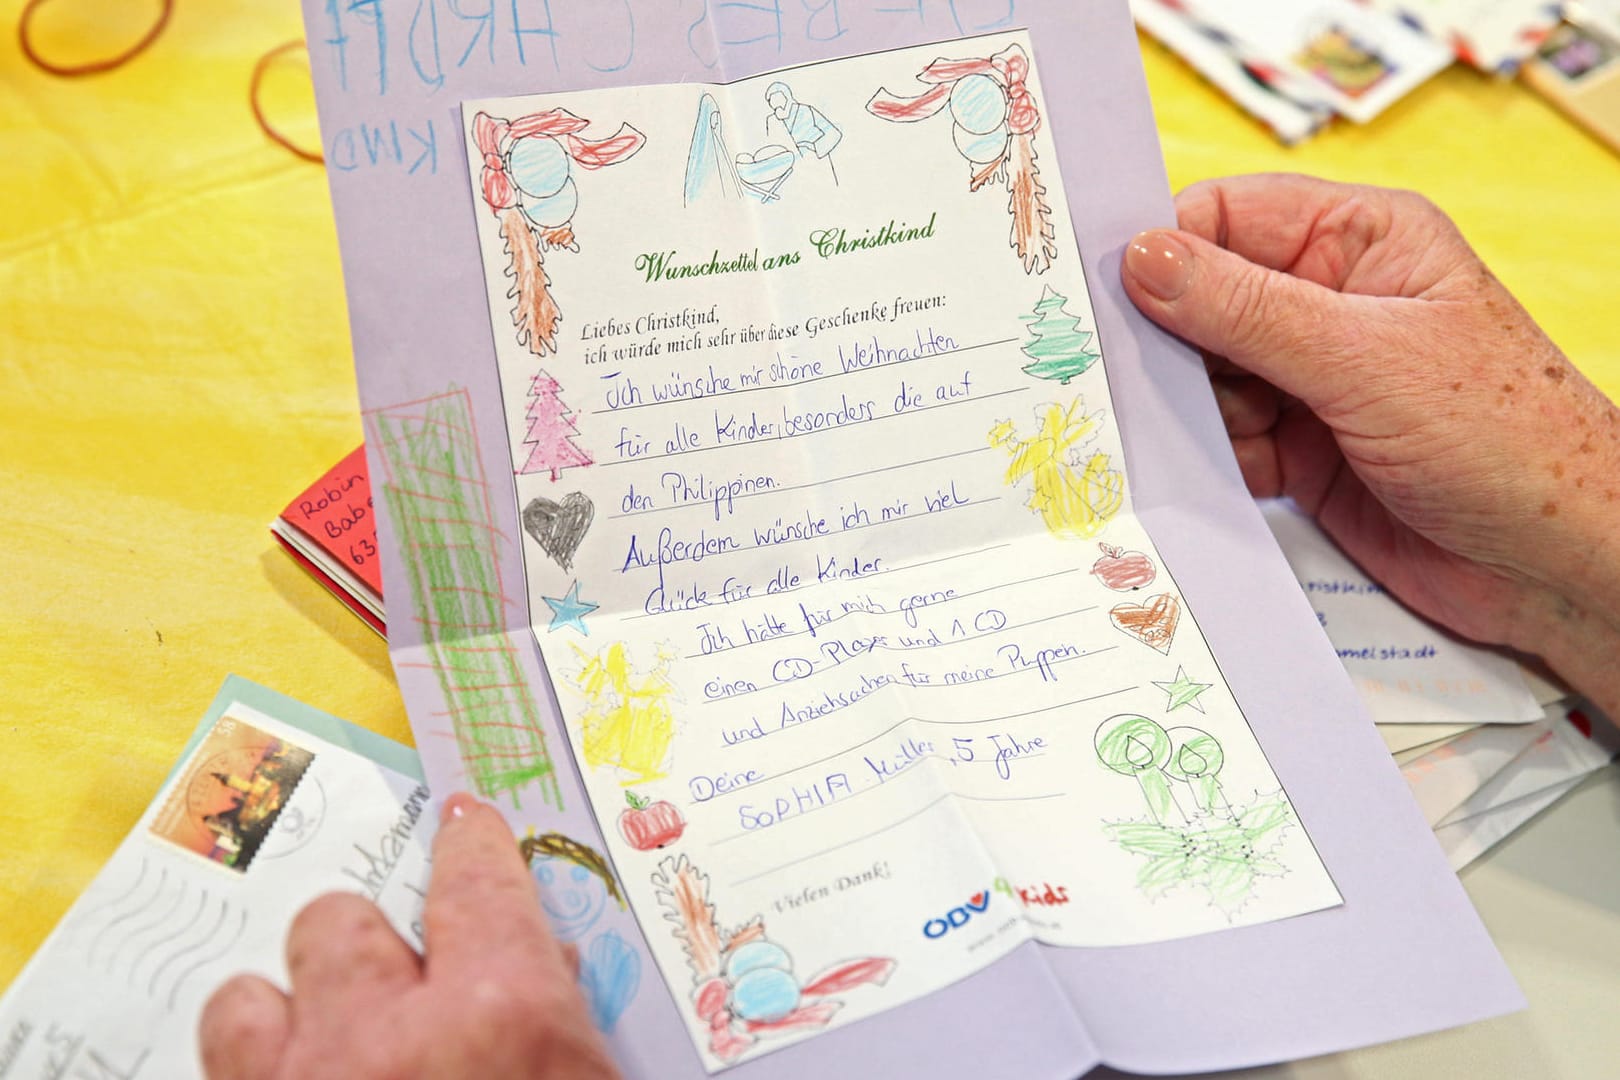 Wunschzettel ans Christkind
Liebes Christkind,
ich würde mich sehr über diese Geschenke freuen:
Ich wünsche mir schöne Weihnachten
für alle Kinder, besonders die auf
den Philippinen.
Außerdem wünsche ich mir viel
Glück für alle Kinder.
Ich hätte für mich gerne
einen CD-Player und 1 CD
und Anziehsachen für meine Puppen.
Deine
SOPHIA Müller, 5 Jahre
Vielen Dank!
ÖBV 4 kids
Robin
58